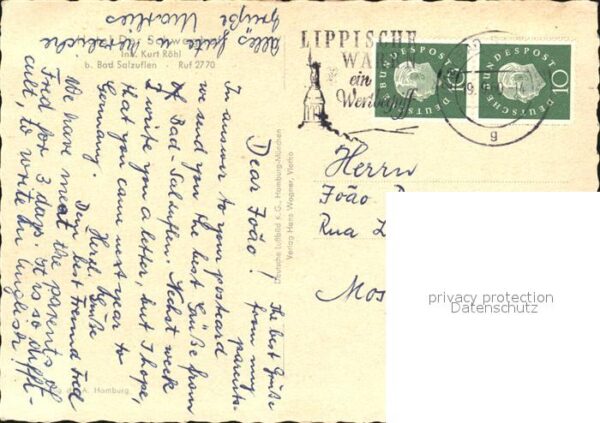 Hotel Der Schwaghof
Inh. Kurt Röhl
b. Bad Salzuflen · Ruf 2770
alles Gute u. herzliche
Grüße Marlies
Dear João!
In answer to your postcard
we send you the best Grüße from
Bad-Salzuflen. Next week
I write you a letter, but I hope,
that you came next year to
Germany.
Herzl. Grüße
Dein best freund Fred
We have meat the parents of
Fred for 3 days. It is so diffi-
cult, to write in English!
The best Grüße
from my
parents.
Deutsche Luftbild K. G., Hamburg-München
Verlag Hans Wagner, Vlotho
Hamburg.
LIPPISCHE
WAREN
ein
Werbegriff
DEUTSCHE BUNDESPOST
10
DEUTSCHE BUNDESPOST
10
g
Herrn
João
Rua
Mos
privacy protection
Datenschutz